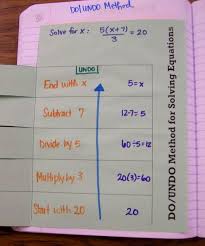 DO/UNDO Method
Solve for x: 5(x+7)/3 = 20
UNDO
End with x 5=x
Subtract 7 12-7=5
Divide by 5 60÷5=12
Multiply by 3 20(3)=60
Start with 20 20
DO/UNDO Method for Solving Equations